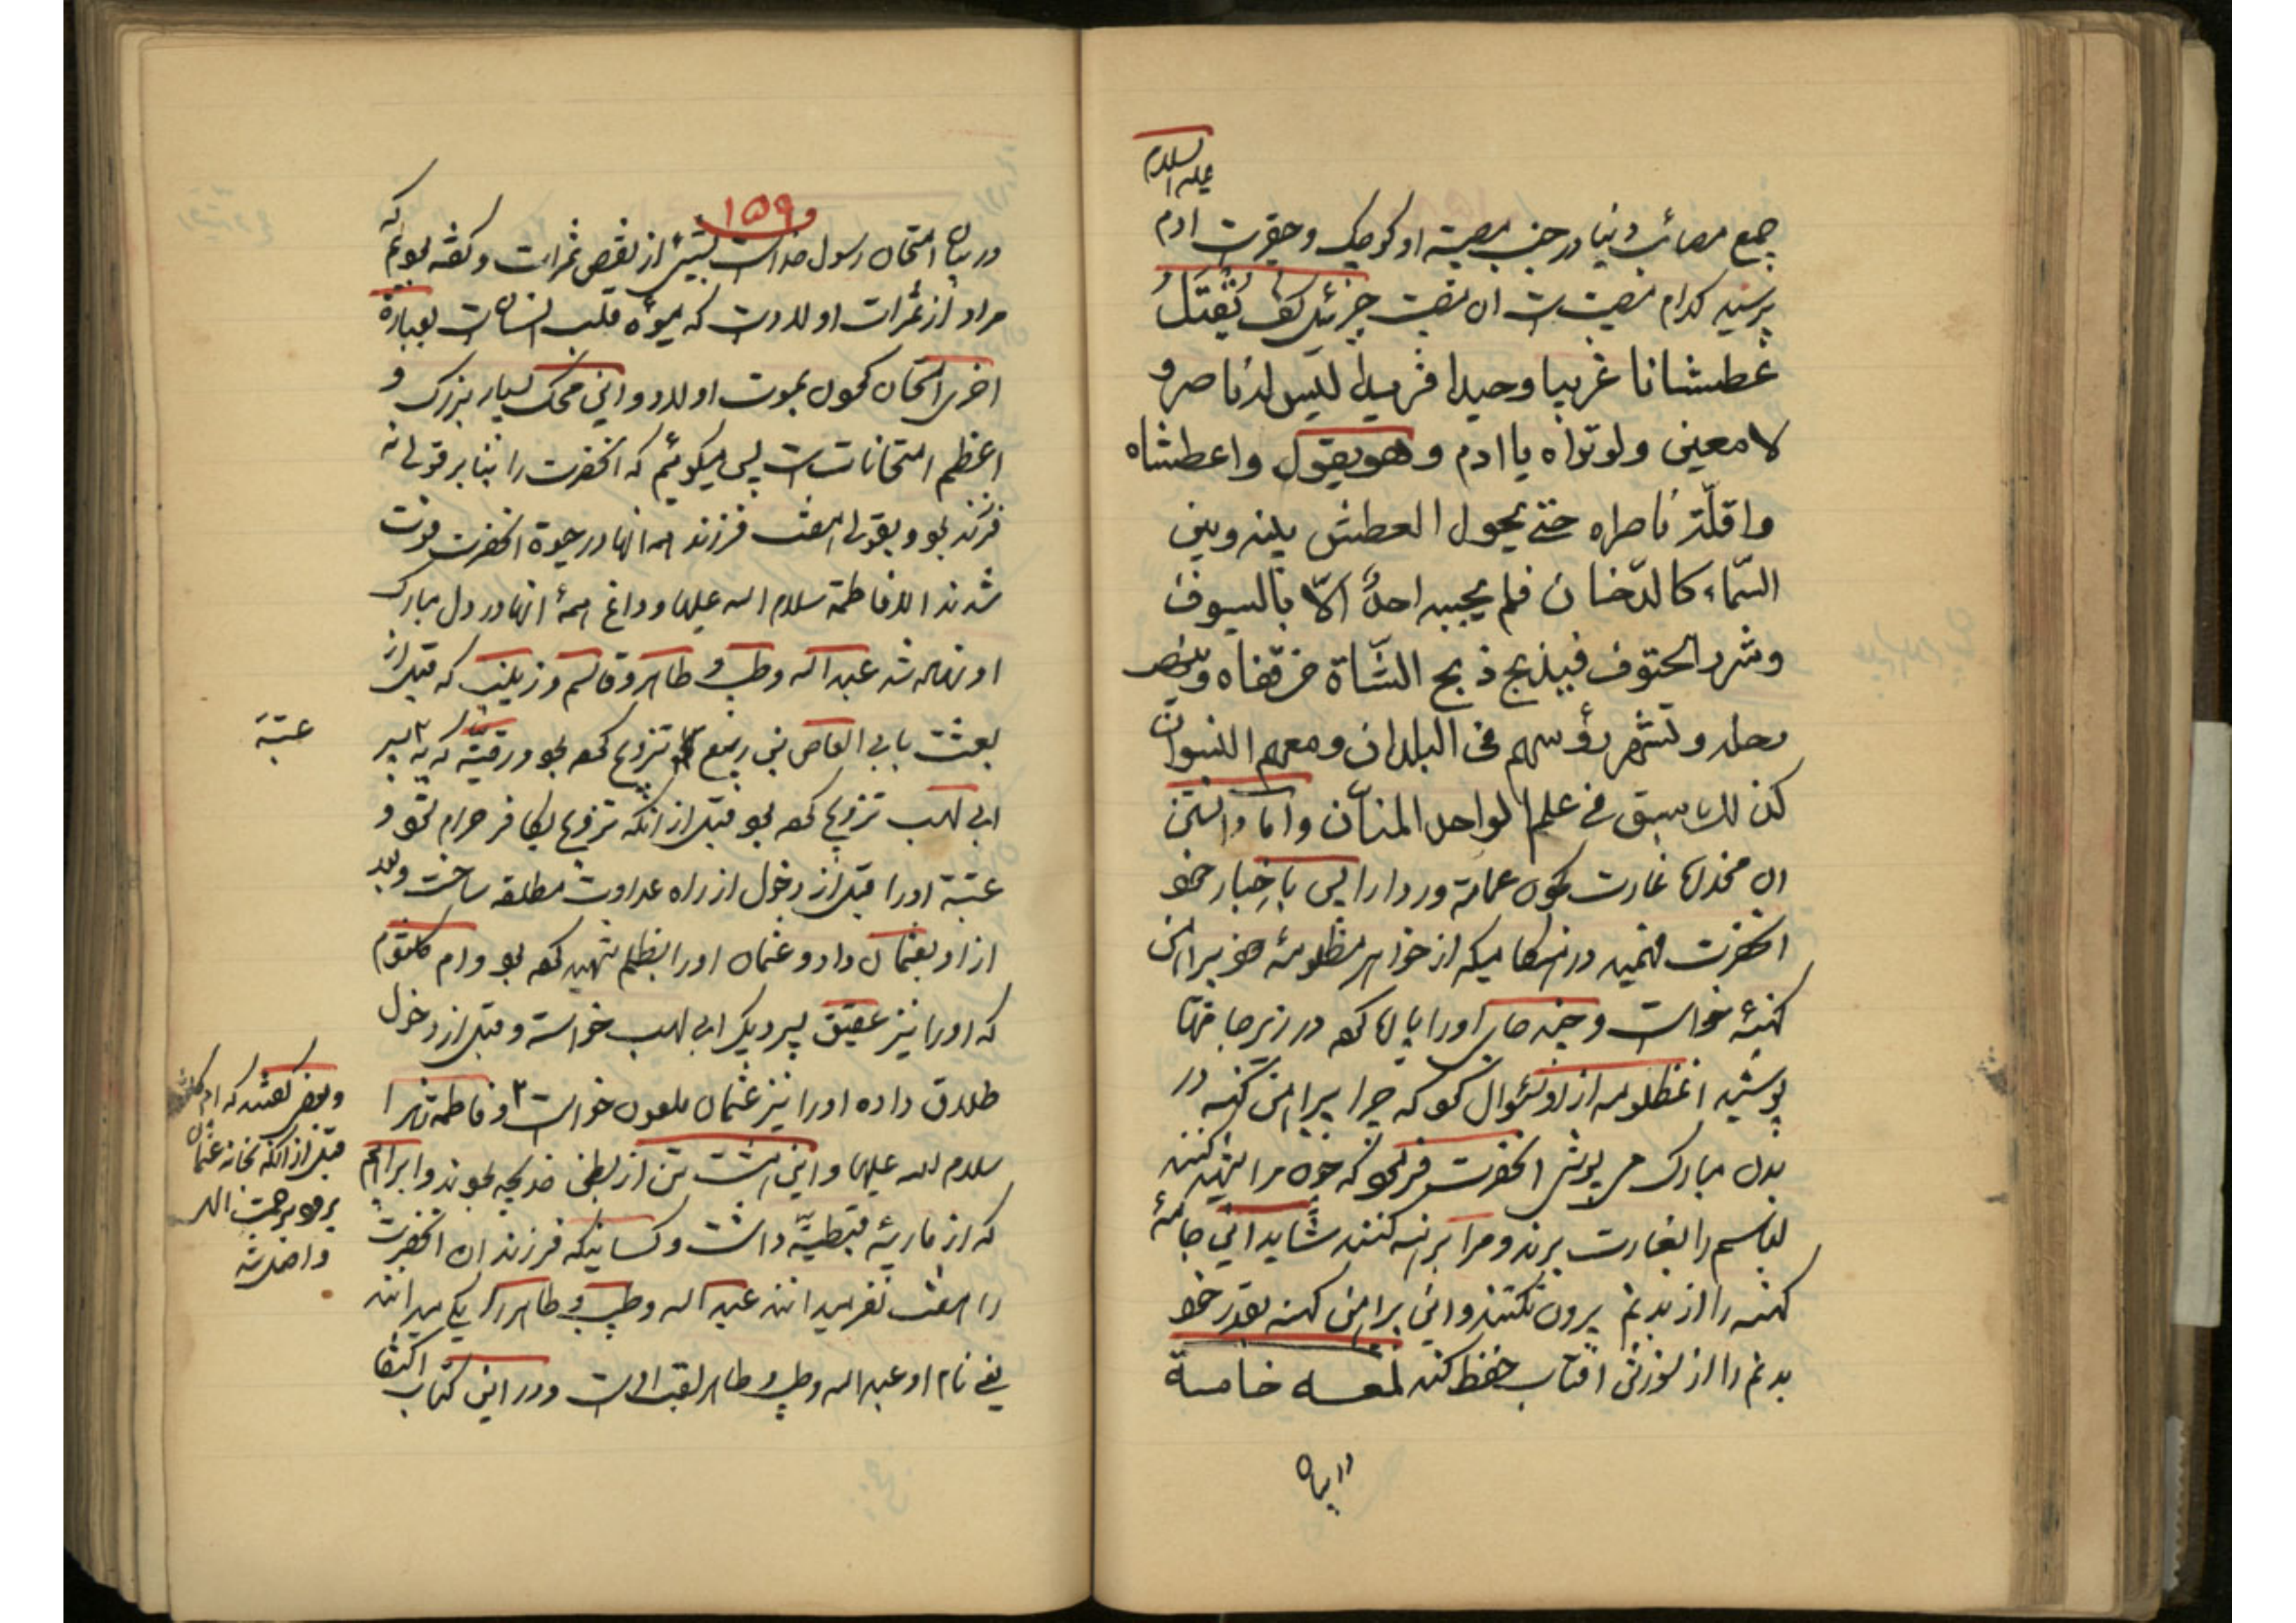 علیه السلام
جمیع مصائب دنیا در جنب مصیبة او کوچک و حقیرست ادم
پرسید کدام مصیبت است ان مصیبت جبرئیل گفت یُقتَلُ
عطشانا غریبا وحیدا فریدا لیس له ناصر و
لا معین ولو تراه یا ادم وهو یقول واعطشاه
واقلّة ناصراه حتی یحول العطش بینه وبین
السّماء کالدّخان فلم یجیبه احدٌ الّا بالسیوف
وشرد الحتوف فیذبح ذبح الشّاة من قفاه وینهب
رحله وتشهر رؤسهم فی البلدان ومعهم النسوان
کذلک سبق فی علم الواحد المنّان واما دانستن
ان مخذره غارت کردن عمامة وردا را پس باخبار خود
انحضرت فهمید در هنگامیکه از خواهر مظلومه خود پیراهن
کهنهٔ خواست و چند جای اورا پاره کرد در زیر جامها
پوشید انمظلومه از او سئوال کرد که چرا پیراهن کهنه در
بدن مبارک می پوشی انحضرت فرمود که چون مرا شهید کنند
لباسم را بغارت برند و مرا برهنه کنند شاید این جامهٔ
کهنه را از بدنم بیرون نکنند و این پیراهن کهنه بقدر خود
بدنم را از سوزش افتاب حفظ کند لمعه خامسة
در بیان
۱۵۹
در بیان امتحان رسول خداست بشیئ از نقص ثمرات و گفته بودیم که
مراد از ثمرات اولاد است که میوه قلب انسان است بعبارة
اخری امتحان کردن بموت اولاد و این محک بسیار بزرگ و
اعظم امتحانات است پس میگوئیم که انحضرت را بنا بر قولی نه
فرزند بود و بقولی هفت فرزند همه انها در حیوة انحضرت فوت
شدند الا فاطمة سلام الله علیها و داغ همهٔ انها در دل مبارک
او نهاده شد عبد الله وطیب وطاهر وقاسم وزینب که قبل از
بعثت بابی العاص بن ربیع تزویج کرده بود ورقیّه که به پسر
ابی لهب تزویج کرده بود قبل از انکه تزویج بکافر حرام شود و
عتبة اورا قبل از دخول از راه عداوت مطلقه ساخت وبعد
از او بعثمان داد و عثمان اورا بظلم شهید کرد بود وام کلثوم
که اورا نیز عتیق پسر دیگر ابی لهب خواسته و قبل از دخول
طلاق داده اورا نیز عثمان ملعون خواست و فاطمه زهرا
سلام الله علیها و این هشت تن از بطن خدیجه بودند و ابراهیم
که از ماریهٔ قبطیّه داشت و کسانیکه فرزندان انحضرت
را هفت نفر میدانند عبد الله وطیب وطاهر را یکی میدانند
یعنی نام او عبد الله وطیب وطاهر لقب اوست و در این کتاب اکتفا
عتبة
وبعضی گفتند که ام کلثوم
قبل از انکه بخانه عثمان
برود برحمت الله
واصل شد